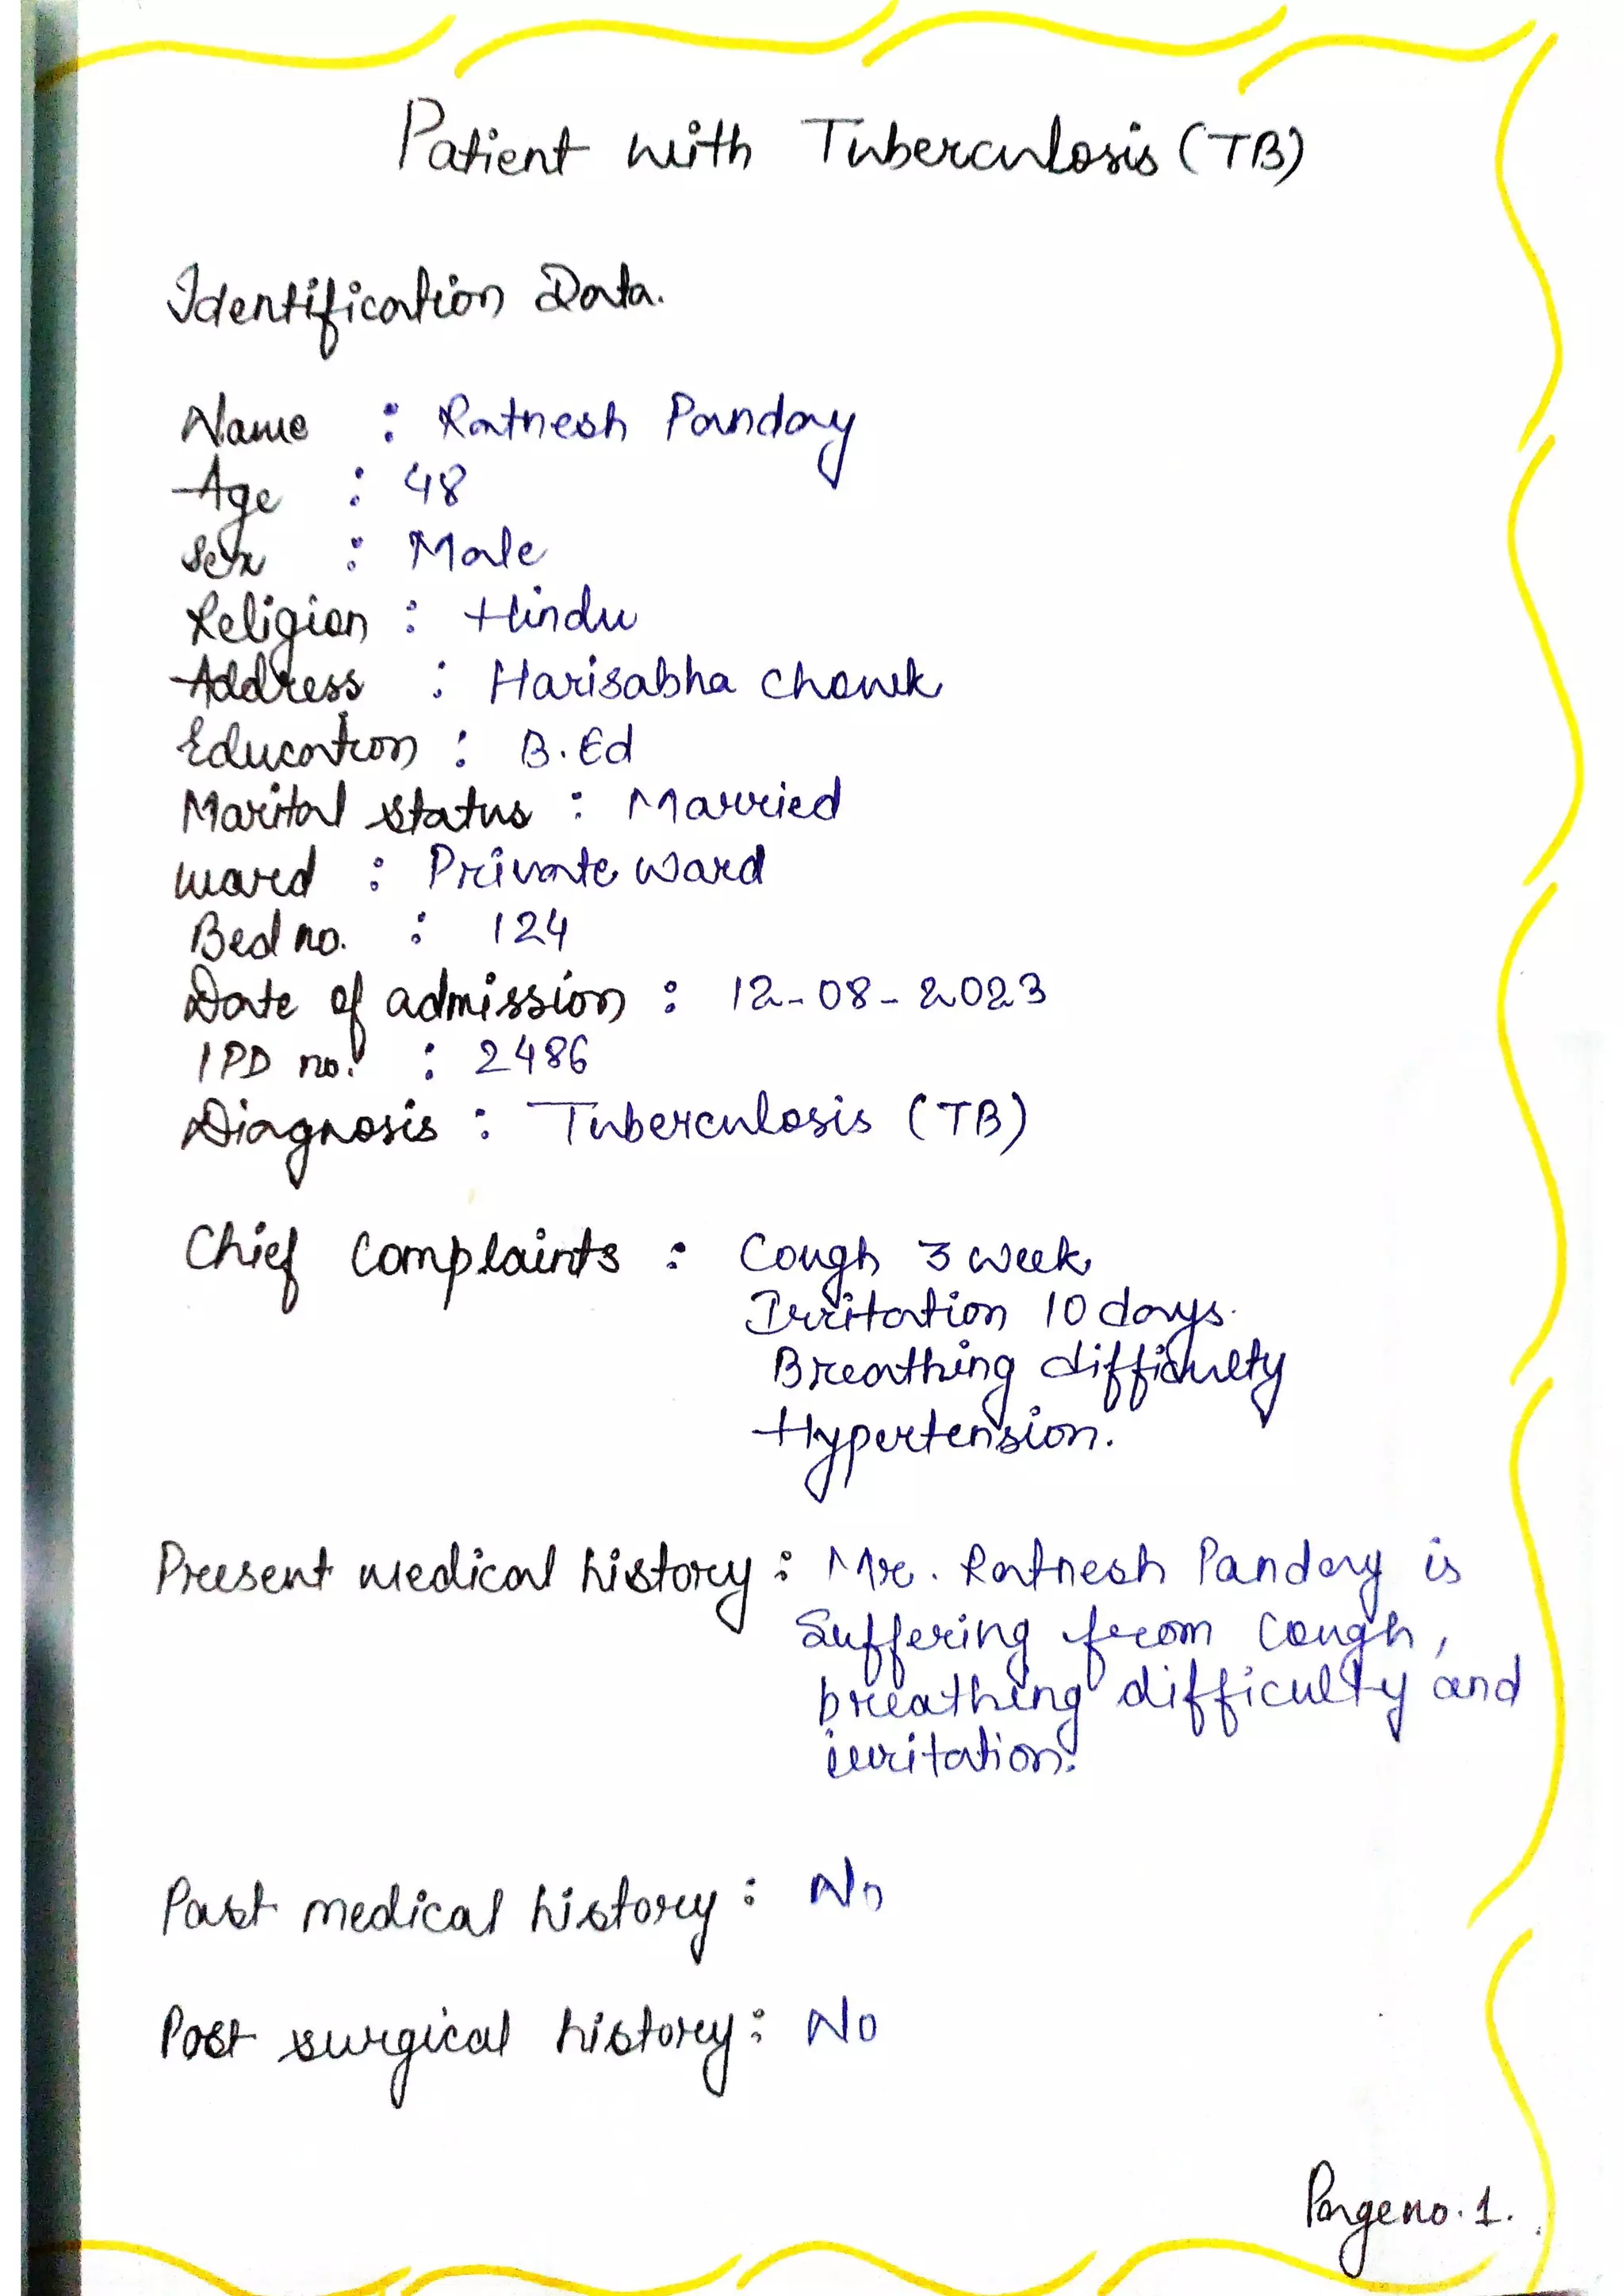 Patient with Tuberculosis (TB)
Identification Data.
Name : Ratnesh Panday
Age : 48
Sex : Male
Religion : Hindu
Address : Harisabha Chowk
Education : B.Ed
Marital status : Married
Ward : Private Ward
Bed no. : 124
Date of admission : 12-08-2023
IPD no. : 2486
Diagnosis : Tuberculosis (TB)
Chief Complaints : Cough 3 week
Irritation 10 days.
Breathing difficulty
Hypertension.
Present medical history : Mr. Ratnesh Panday is
Suffering from Cough,
breathing difficulty and
irritation.
Past medical history : No
Past surgical history : No
Page no. 1.